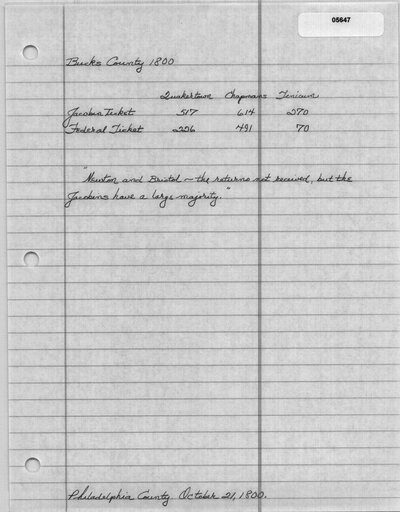 05647
Bucks County 1800
Quakertown Chapmans Tenicum
Jacobin Ticket 517 614 270
Federal Ticket 226 491 70
"Newton and Bristol — the returns not received, but the
Jacobins have a large majority."
Philadelphia County October 21, 1800.